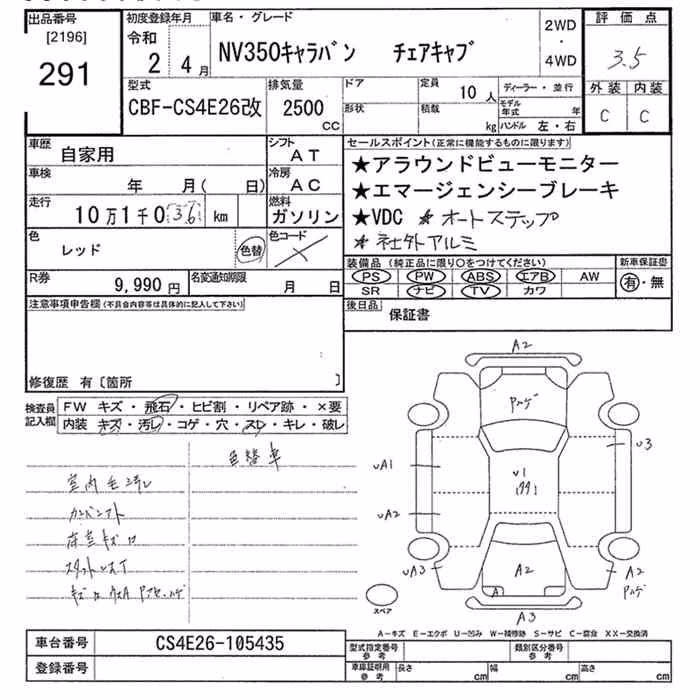 出品番号 初度登録年月 車名・グレード 2WD 評価点
[2196] 令和 ・
291 2 4月 NV350キャラバン チェアキャブ 4WD 3.5
型式 排気量 ドア 定員 10人 ディーラー・並行 外装 内装
CBF-CS4E26改 2500 CC 形状 積載 kg モデル年式 年 C C
ハンドル 左・右
車歴 自家用 シフト AT セールスポイント(正常に機能するものに限ります)
車検 年 月( 日) 冷房 AC ★アラウンドビューモニター
★エマージェンシーブレーキ
走行 10万1千0 36 km 燃料 ガソリン ★VDC ★オートステップ
色 レッド 色替 色コード ★社外アルミ
装備品(純正品に限り○をつけてください) 新車保証書
R券 9,990円 名変通知期限 月 日 PS PW ABS エアB AW 有・無
SR ナビ TV カワ
注意事項申告欄(不具合内容等は具体的に記入して下さい) 後日品 保証書
修復歴 有〔箇所 〕
検査員記入欄 FW キズ・飛石・ヒビ割・リペア跡・×要
内装 キズ・汚レ・コゲ・穴・スレ・キレ・破レ
色替車
室内
A2
U3
UA1
U1
UA2
UA3
A2
A
A2
A3
スペア
A-キズ E-エクボ U-凹み W-補修跡 S-サビ C-腐食 XX-交換済
車台番号 CS4E26-105435 型式指定番号 参考 類別区分番号 参考
登録番号 車庫証明用 参考 長さ cm 幅 cm 高さ cm